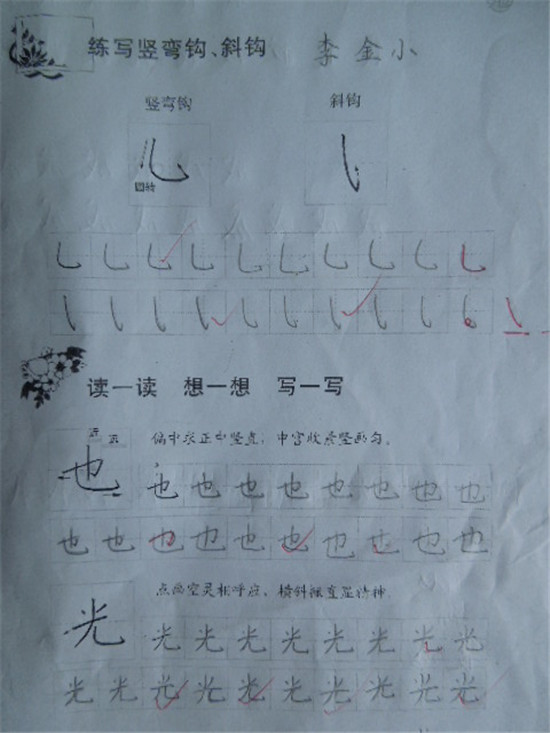 练写竖弯钩、斜钩 李金小
竖弯钩 斜钩
乚
乚 乚 乚 乚 乚 乚 乚 乚 乚 乚
读一读 想一想 写一写
偏中求正中竖直,中宫收紧竖画匀。
也 也 也 也 也 也 也 也 也
也 也 也 也 也 也 也 也 也 也
点画空灵相呼应,横斜撇直显精神
光 光 光 光 光 光 光 光 光
光 光 光 光 光 光 光 光 光 光